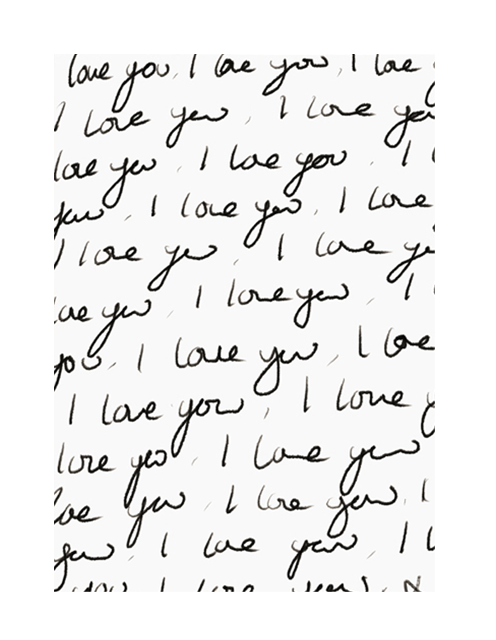 love you, I love you, I love
I love you, I love you
love you, I love you, I
you, I love you, I love
I love you, I love
love you, I love you, I
you, I love you, I love
I love you, I love
love you, I love you
love you, I love you, I
you, I love you, I
you, I love you,